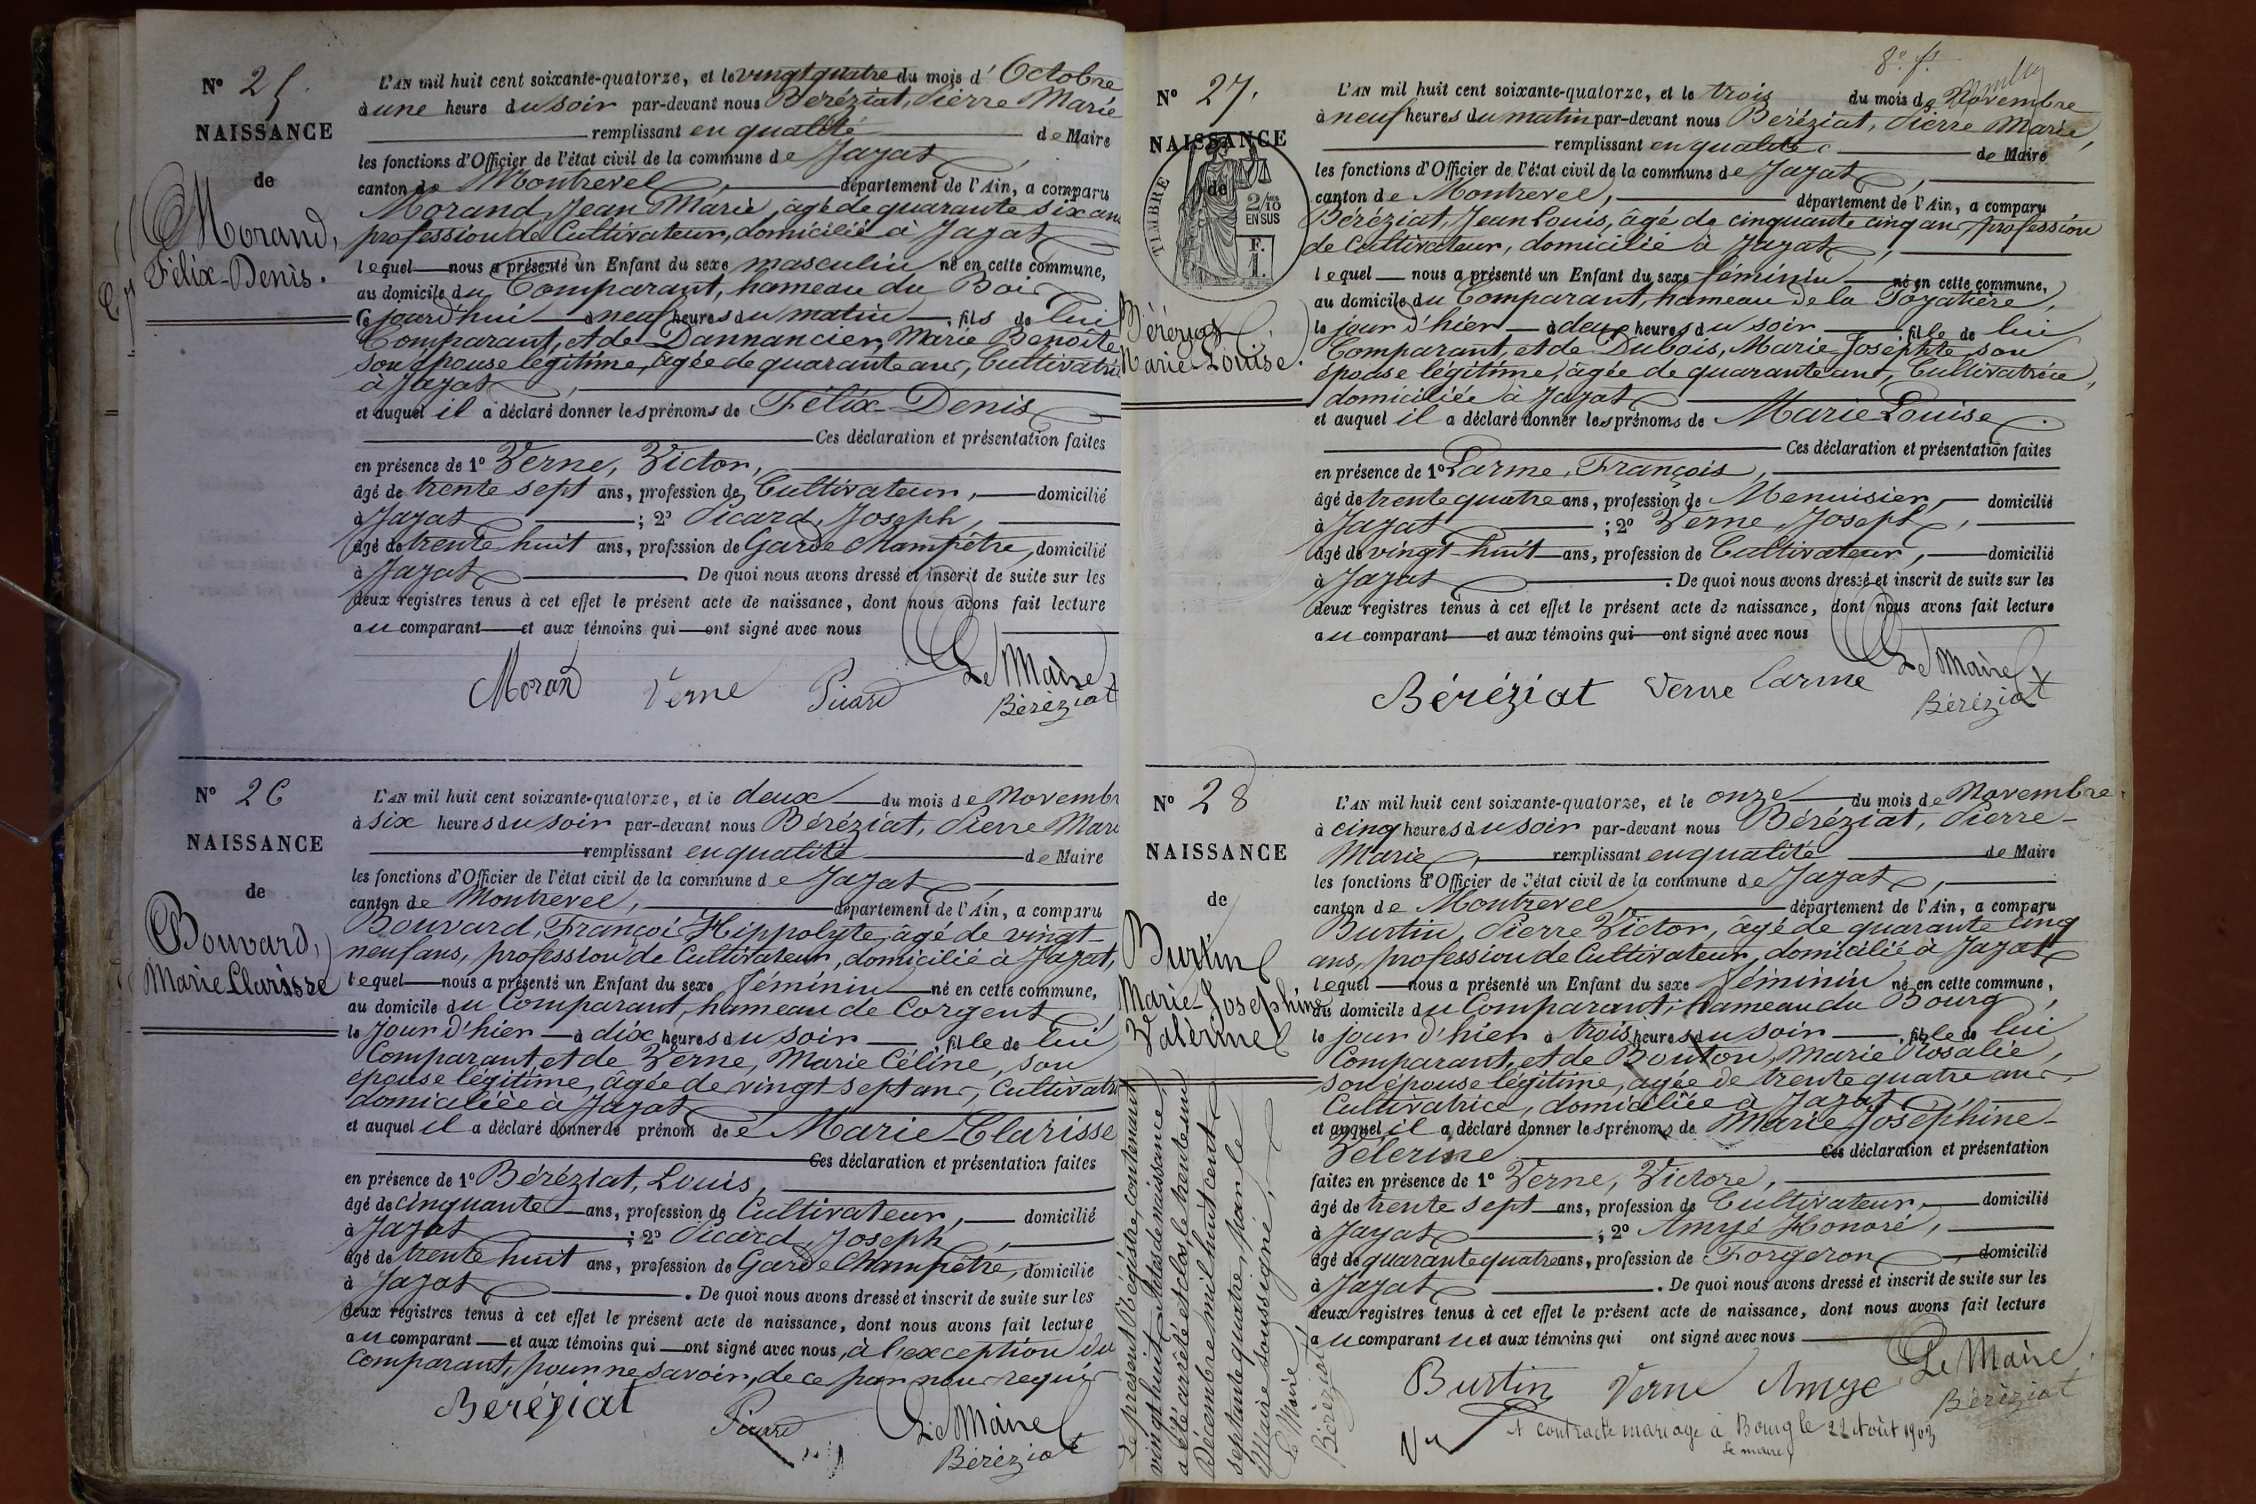 N° 25.
NAISSANCE
de
Morand,
Félix-Denis.
L'AN mil huit cent soixante-quatorze, et le vingt quatre du mois d'Octobre
à une heure du soir par-devant nous Béréziat, Pierre Marie
remplissant en qualité de Maire
les fonctions d'Officier de l'état civil de la commune de Jayat
canton de Montrevel, département de l'Ain, a comparu
Morand, Jean Marie, âgé de quarante six ans
profession de Cultivateur, domicilié à Jayat
lequel nous a présenté un Enfant du sexe masculin né en cette commune,
au domicile du Comparant, hameau du Bois
ce jourd'hui à neuf heures du matin, fils de lui
Comparant, et de Dannancier, Marie Benoîte
son épouse légitime, âgée de quarante ans, Cultivatri
à Jayat,
et auquel il a déclaré donner les prénoms de Félix-Denis
Ces déclaration et présentation faites
en présence de 1° Verne, Victor,
âgé de trente sept ans, profession de Cultivateur, domicilié
à Jayat ; 2° Picard, Joseph,
âgé de trente huit ans, profession de Garde Champêtre, domicilié
à Jayat. De quoi nous avons dressé et inscrit de suite sur les
deux registres tenus à cet effet le présent acte de naissance, dont nous avons fait lecture
au comparant et aux témoins qui ont signé avec nous
Moran Verne Picard Le Maire
Béréziat
N° 26
NAISSANCE
de
Bouvard,
Marie Clarisse
L'AN mil huit cent soixante-quatorze, et le deux du mois de Novembr
à six heures du soir par-devant nous Béréziat, Pierre Mari
remplissant en qualité de Maire
les fonctions d'Officier de l'état civil de la commune de Jayat
canton de Montrevel, département de l'Ain, a comparu
Bouvard, Françoi Hippolyte, âgé de vingt-
neuf ans, profession de Cultivateur, domicilié à Jayat,
lequel nous a présenté un Enfant du sexe féminin né en cette commune,
au domicile du Comparant, hameau de Corgent,
le jour d'hier à dix heures du soir, fille de lui
Comparant, et de Verne, Marie Céline, son
épouse légitime, âgée de vingt sept ans, Cultivatri
domiciliée à Jayat
et auquel il a déclaré donner le prénom de Marie-Clarisse
Ces déclaration et présentation faites
en présence de 1° Béréziat, Louis,
âgé de cinquante ans, profession de Cultivateur, domicilié
à Jayat ; 2° Picard, Joseph,
âgé de trente huit ans, profession de Garde Champêtre, domicilié
à Jayat. De quoi nous avons dressé et inscrit de suite sur les
deux registres tenus à cet effet le présent acte de naissance, dont nous avons fait lecture
au comparant et aux témoins qui ont signé avec nous, à l'exception du
comparant, pour ne savoir, de ce par nous requis
Béréziat Picard Le Maire
Béréziat
8e f.
N° 27.
NAISSANCE
de
TIMBRE
2/10 EN SUS
F. 1.
Béréziat,
Marie-Louise.
L'AN mil huit cent soixante-quatorze, et le trois du mois de Novembre
à neuf heures du matin par-devant nous Béréziat, Pierre Marie,
remplissant en qualité de Maire
les fonctions d'Officier de l'état civil de la commune de Jayat,
canton de Montrevel, département de l'Ain, a comparu
Béréziat, Jean Louis, âgé de cinquante cinq ans, profession
de Cultivateur, domicilié à Jayat,
lequel nous a présenté un Enfant du sexe féminin né en cette commune,
au domicile du Comparant, hameau de la Pozatière,
le jour d'hier à deux heures du soir fille de lui
Comparant, et de Dubois, Marie Joséphte son
épouse légitime, âgée de quarante ans, Cultivatrice,
domiciliée à Jayat
et auquel il a déclaré donner les prénoms de Marie Louise.
Ces déclaration et présentation faites
en présence de 1° Parme, François,
âgé de trente quatre ans, profession de Menuisier, domicilié
à Jayat ; 2° Verne, Joseph,
âgé de vingt huit ans, profession de Cultivateur, domicilié
à Jayat. De quoi nous avons dressé et inscrit de suite sur les
deux registres tenus à cet effet le présent acte de naissance, dont nous avons fait lecture
au comparant et aux témoins qui ont signé avec nous
Béréziat Verne Parme Le Maire
Béréziat
N° 28
NAISSANCE
de
Burtin
Marie-Joséphine
Valérine
L'AN mil huit cent soixante-quatorze, et le onze du mois de Novembre
à cinq heures du soir par-devant nous Béréziat, Pierre-
Marie, remplissant en qualité de Maire
les fonctions d'Officier de l'état civil de la commune de Jayat,
canton de Montrevel, département de l'Ain, a comparu
Burtin, Pierre Victor, âgé de quarante cinq
ans, profession de Cultivateur, domicilié à Jayat
lequel nous a présenté un Enfant du sexe féminin né en cette commune,
au domicile du Comparant, hameau du Bourg,
le jour d'hier à trois heures du soir, fille de lui
Comparant, et de Bouton, Marie Rosalie,
son épouse légitime, âgée de trente quatre ans,
Cultivatrice, domiciliée à Jayat,
et auquel il a déclaré donner les prénoms de Marie Joséphine-
Velerine Ces déclaration et présentation
faites en présence de 1° Verne, Victore,
âgé de trente sept ans, profession de Cultivateur, domicilié
à Jayat ; 2° Amyé Honoré,
âgé de quarante quatre ans, profession de Forgeron, domicilié
à Jayat. De quoi nous avons dressé et inscrit de suite sur les
deux registres tenus à cet effet le présent acte de naissance, dont nous avons fait lecture
au comparant et aux témoins qui ont signé avec nous
Burtin Verne Amyé Le Maire
Béréziat
A contracté mariage à Bourg le 22 Août 1903
Le maire
Vu
Le présent Registre, contenant
vingt huit Actes de naissance,
a été arrêté et clos le trente et un
Décembre mil huit cent
septante quatre, par le
Maire soussigné,
Le Maire
Béréziat